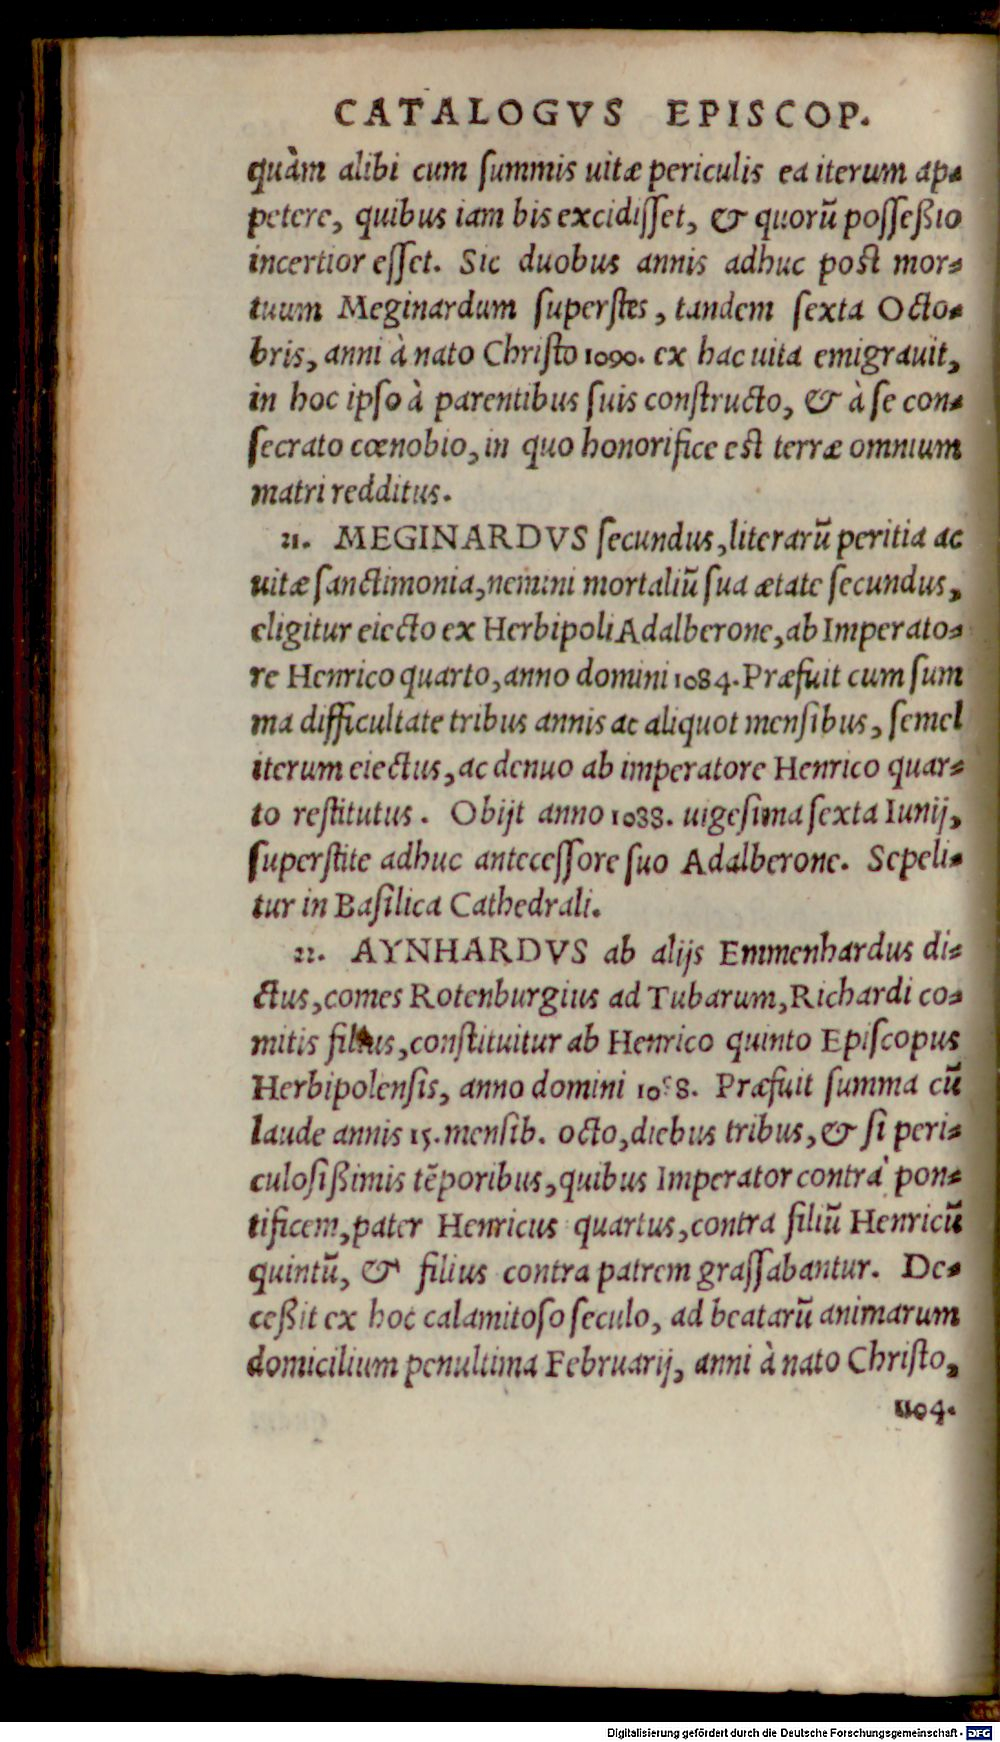 CATALOGVS EPISCOP.
quàm alibi cum ſummis uitæ periculis ea iterum ap-
petere, quibus iam bis excidiſſet, & quorũ poſſeßio
incertior eſſet. Sic duobus annis adhuc post mor-
tuum Meginardum ſuperſtes, tandem ſexta Octo-
bris, anni à nato Chriſto 1090. ex hac uita emigrauit,
in hoc ipſo à parentibus ſuis conſtructo, & à ſe con-
ſecrato cœnobio, in quo honorifice est terræ omnium
matri redditus.
21. MEGINARDVS ſecundus, literarũ peritia ac
uitæ ſanctimonia, nemini mortaliũ ſua ætate ſecundus,
eligitur eiecto ex Herbipoli Adalberone, ab Imperato-
re Henrico quarto, anno domini 1084. Præfuit cum ſum
ma difficultate tribus annis ac aliquot menſibus, ſemel
iterum eiectus, ac denuo ab imperatore Henrico quar-
to reſtitutus. Obijt anno 1088. uigeſima ſexta Iunij,
ſuperſtite adhuc anteceſſore ſuo Adalberone. Sepeli-
tur in Baſilica Cathedrali.
22. AYNHARDVS ab alijs Emmenhardus di-
ctus, comes Rotenburgius ad Tubarum, Richardi co-
mitis filius, conſtituitur ab Henrico quinto Epiſcopus
Herbipolenſis, anno domini Præfuit ſumma cũ
laude annis 15. menſib. octo, diebus tribus, & ſi peri-
culoſißimis tẽporibus, quibus Imperator contrà pon-
tificem, pater Henricus quartus, contra filiũ Henricũ
quintũ, & filius contra patrem graſſabantur. De-
ceßit ex hoc calamitoſo ſeculo, ad beatarũ animarum
domicilium penultima Februarij, anni à nato Chriſto,
1104.
Digitalisierung gefördert durch die Deutsche Forschungsgemeinschaft - DFG